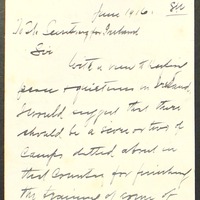 June 1916.
To The Secretary for Ireland
Sir
With a view to
peace & quietness in Ireland,
I would suggest that there
should be a series or two of
Camps dotted about in
that Country for finishing
the training of some of